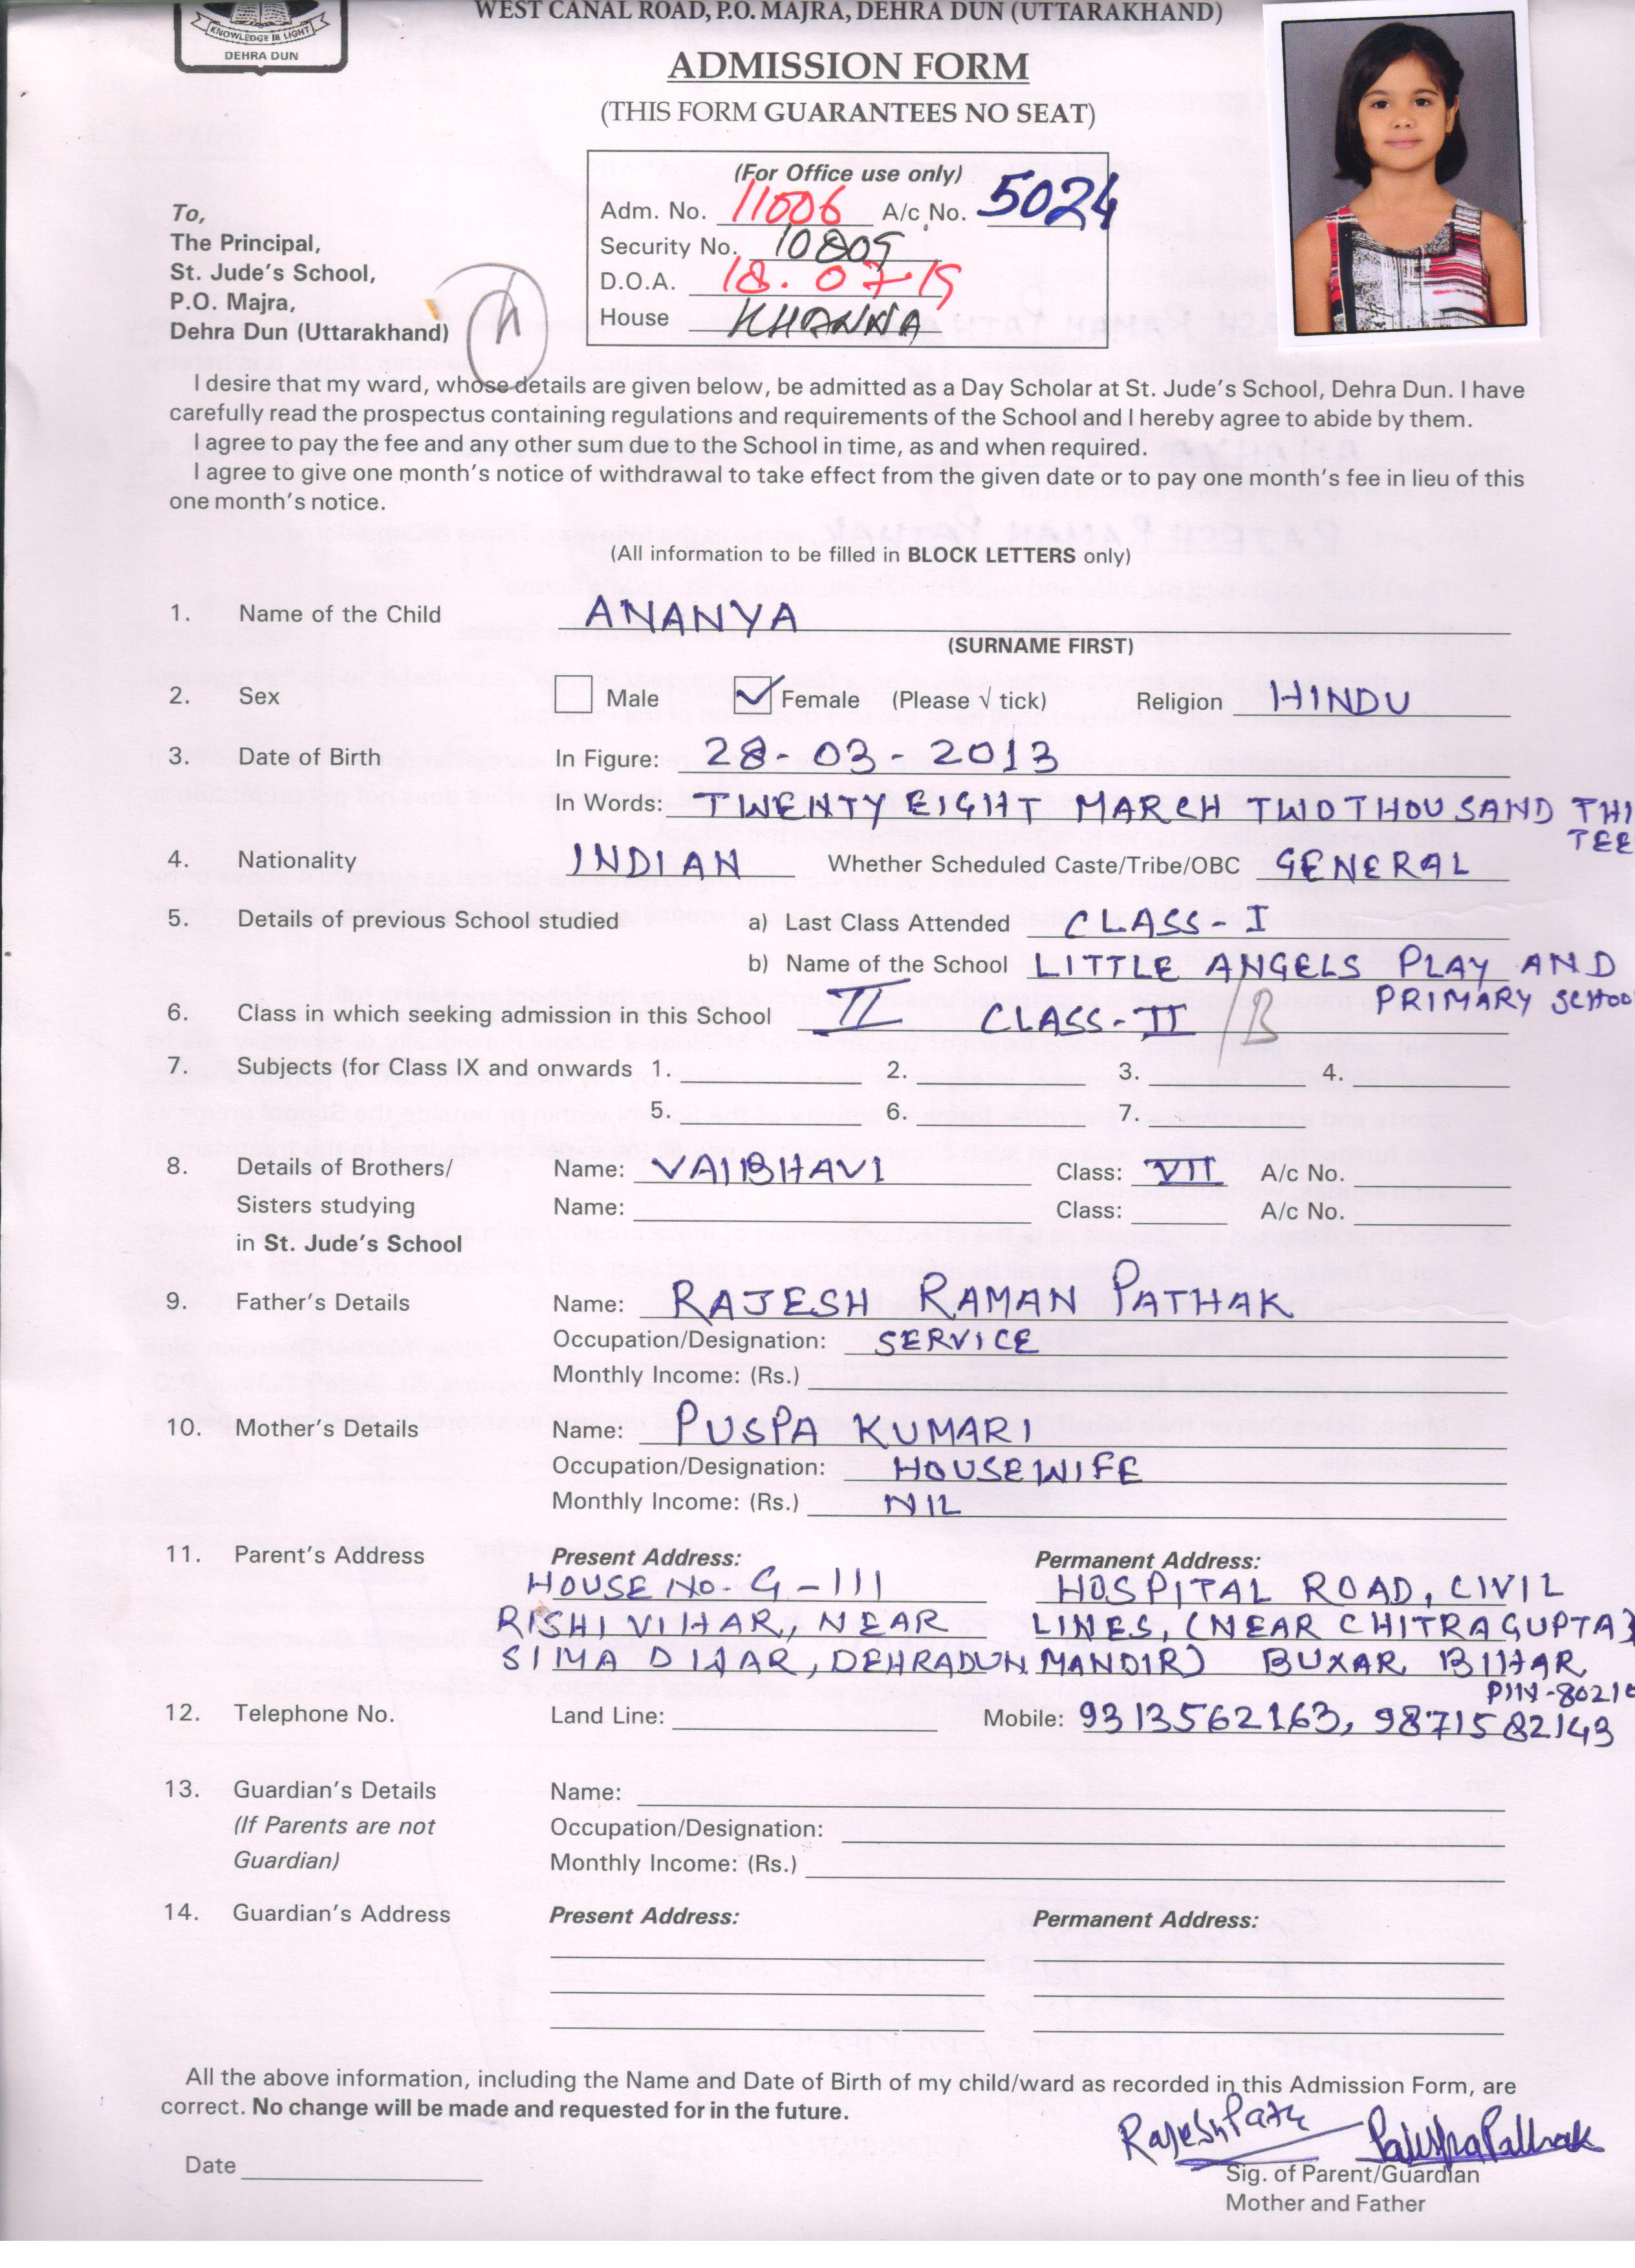 WEST CANAL ROAD, P.O. MAJRA, DEHRA DUN (UTTARAKHAND)
KNOWLEDGE IS LIGHT
DEHRA DUN
ADMISSION FORM
(THIS FORM GUARANTEES NO SEAT)
(For Office use only)
Adm. No. 11006 A/c No. 5024
Security No. 10805
D.O.A. 18.07.19
House KHANNA
To,
The Principal,
St. Jude's School,
P.O. Majra,
Dehra Dun (Uttarakhand)
I desire that my ward, whose details are given below, be admitted as a Day Scholar at St. Jude's School, Dehra Dun. I have
carefully read the prospectus containing regulations and requirements of the School and I hereby agree to abide by them.
I agree to pay the fee and any other sum due to the School in time, as and when required.
I agree to give one month's notice of withdrawal to take effect from the given date or to pay one month's fee in lieu of this
one month's notice.
(All information to be filled in BLOCK LETTERS only)
1. Name of the Child ANANYA
(SURNAME FIRST)
2. Sex Male Female (Please √ tick) Religion HINDU
3. Date of Birth In Figure: 28-03-2013
In Words: TWENTY EIGHT MARCH TWO THOUSAND THI
TEE
4. Nationality INDIAN Whether Scheduled Caste/Tribe/OBC GENERAL
5. Details of previous School studied a) Last Class Attended CLASS-I
b) Name of the School LITTLE ANGELS PLAY AND
PRIMARY SCHOO
6. Class in which seeking admission in this School II CLASS-II /B
7. Subjects (for Class IX and onwards 1. 2. 3. 4.
5. 6. 7.
8. Details of Brothers/ Name: VAIBHAVI Class: VII A/c No.
Sisters studying Name: Class: A/c No.
in St. Jude's School
9. Father's Details Name: RAJESH RAMAN PATHAK
Occupation/Designation: SERVICE
Monthly Income: (Rs.)
10. Mother's Details Name: PUSPA KUMARI
Occupation/Designation: HOUSEWIFE
Monthly Income: (Rs.) NIL
11. Parent's Address Present Address: Permanent Address:
HOUSE NO. G-111 HOSPITAL ROAD, CIVIL
RISHI VIHAR, NEAR LINES, (NEAR CHITRAGUPTA
SIMA DWAR, DEHRADUN MANDIR) BUXAR BIHAR
PIN-8021
12. Telephone No. Land Line: Mobile: 9313562163, 9871582143
13. Guardian's Details Name:
(If Parents are not Occupation/Designation:
Guardian) Monthly Income: (Rs.)
14. Guardian's Address Present Address: Permanent Address:
All the above information, including the Name and Date of Birth of my child/ward as recorded in this Admission Form, are
correct. No change will be made and requested for in the future.
Date
Sig. of Parent/Guardian
Mother and Father